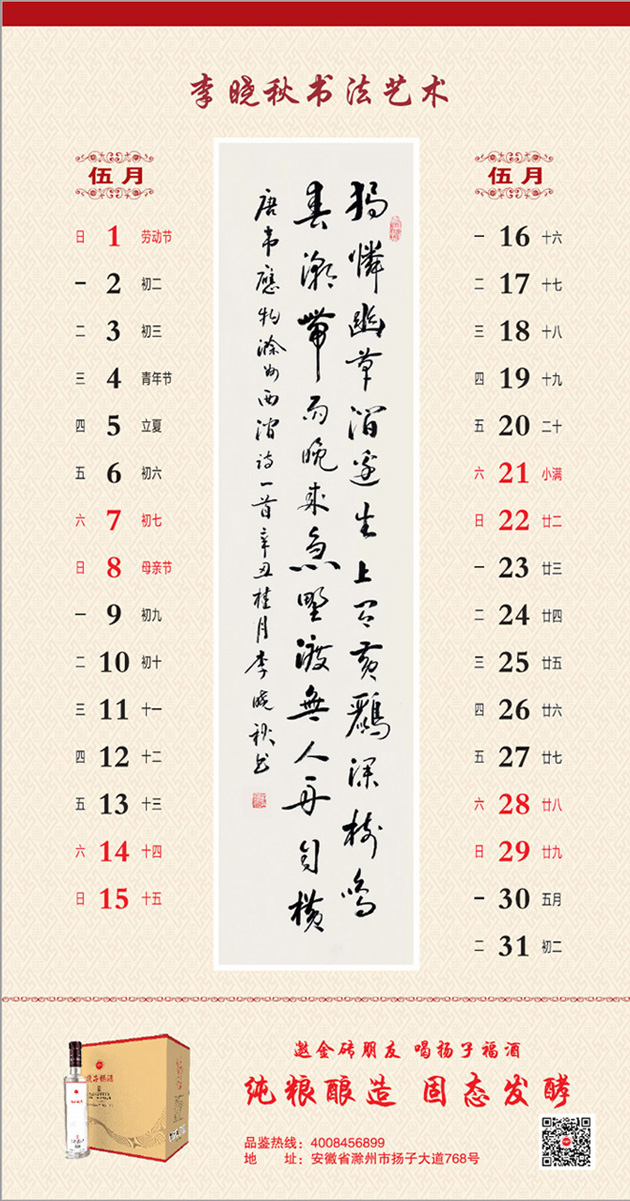 李晓秋书法艺术
伍月
日 1 劳动节
一 2 初二
二 3 初三
三 4 青年节
四 5 立夏
五 6 初六
六 7 初七
日 8 母亲节
一 9 初九
二 10 初十
三 11 十一
四 12 十二
五 13 十三
六 14 十四
日 15 十五
獨憐幽草澗邊生上有黄鸝深樹鳴
春潮帶雨晚来急野渡無人舟自横
唐韦應物滁州西澗诗一首辛丑桂月李晓秋书
伍月
一 16 十六
二 17 十七
三 18 十八
四 19 十九
五 20 二十
六 21 小满
日 22 廿二
一 23 廿三
二 24 廿四
三 25 廿五
四 26 廿六
五 27 廿七
六 28 廿八
日 29 廿九
一 30 五月
二 31 初二
邀金砖朋友 喝扬子福酒
纯粮酿造 固态发酵
品鉴热线：4008456899
地 址：安徽省滁州市扬子大道768号